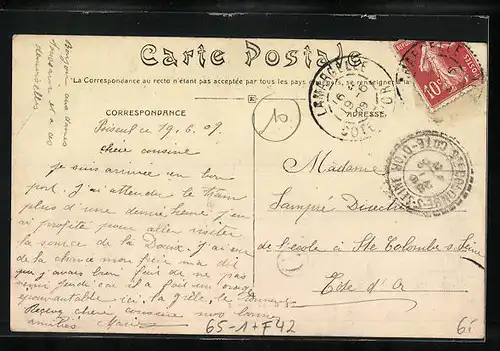 Carte Postale
La Correspondance au recto n'étant pas acceptée par tous les pays
se renseigner
CORRESPONDANCE
ADRESSE
Bonjour aux dames
et a ces
demoiselles
19.6.09
chère cousine
je suis arrivée en bon
port. J'ai attendu le tram
plus d'une demie heure j'en
ai profité pour aller visiter
la source de la Doux. J'ai eu
de la chance mon frère m'a dit
que j'avais bien fait de ne pas
venir jeudi car il a fait un orage
épouvantable ici, la grêle le tonnerre
Recevez chère cousine mes bonnes
amitiés Marie
Madame
Directrice
de l'école à Ste Colombe s. Seine
Côte d'Or
LAMARGELLE
19-6
09
COTE-D'OR
10
STE COLOMBE-S-SEINE
COTE-D'OR
10
65-1+F42
6i